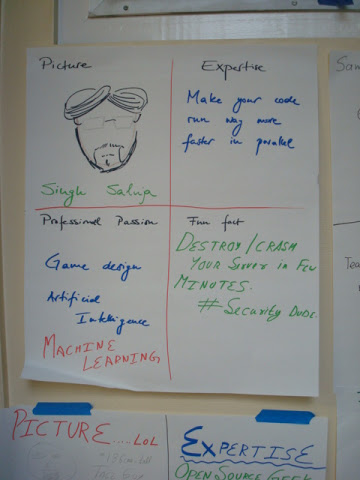 Picture
Singh Saluja
Expertise
Make your code
run way more
faster in parallel
Professional Passion
Game design
Artificial
Intelligence
MACHINE
LEARNING
Fun fact
DESTROY/CRASH
YOUR SERVER IN FEW
MINUTES.
# SECURITY DUDE
PICTURE....LOL
EXPERTISE
OPEN SOURCE GEEK
Sam
Tea